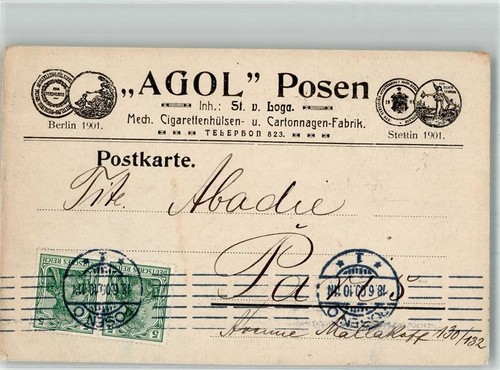 „AGOL” Posen
Inh.: St. v. Loga.
Mech. Cigarettenhülsen- u. Cartonnagen-Fabrik.
TELEPHON 823.
Berlin 1901.
Stettin 1901.
Postkarte.
Tit. Abadie
Paris
Avenue Malakoff 130/132
DEUTSCHES REICH
DEUTSCHES REICH
5
5
POSEN
18.6.